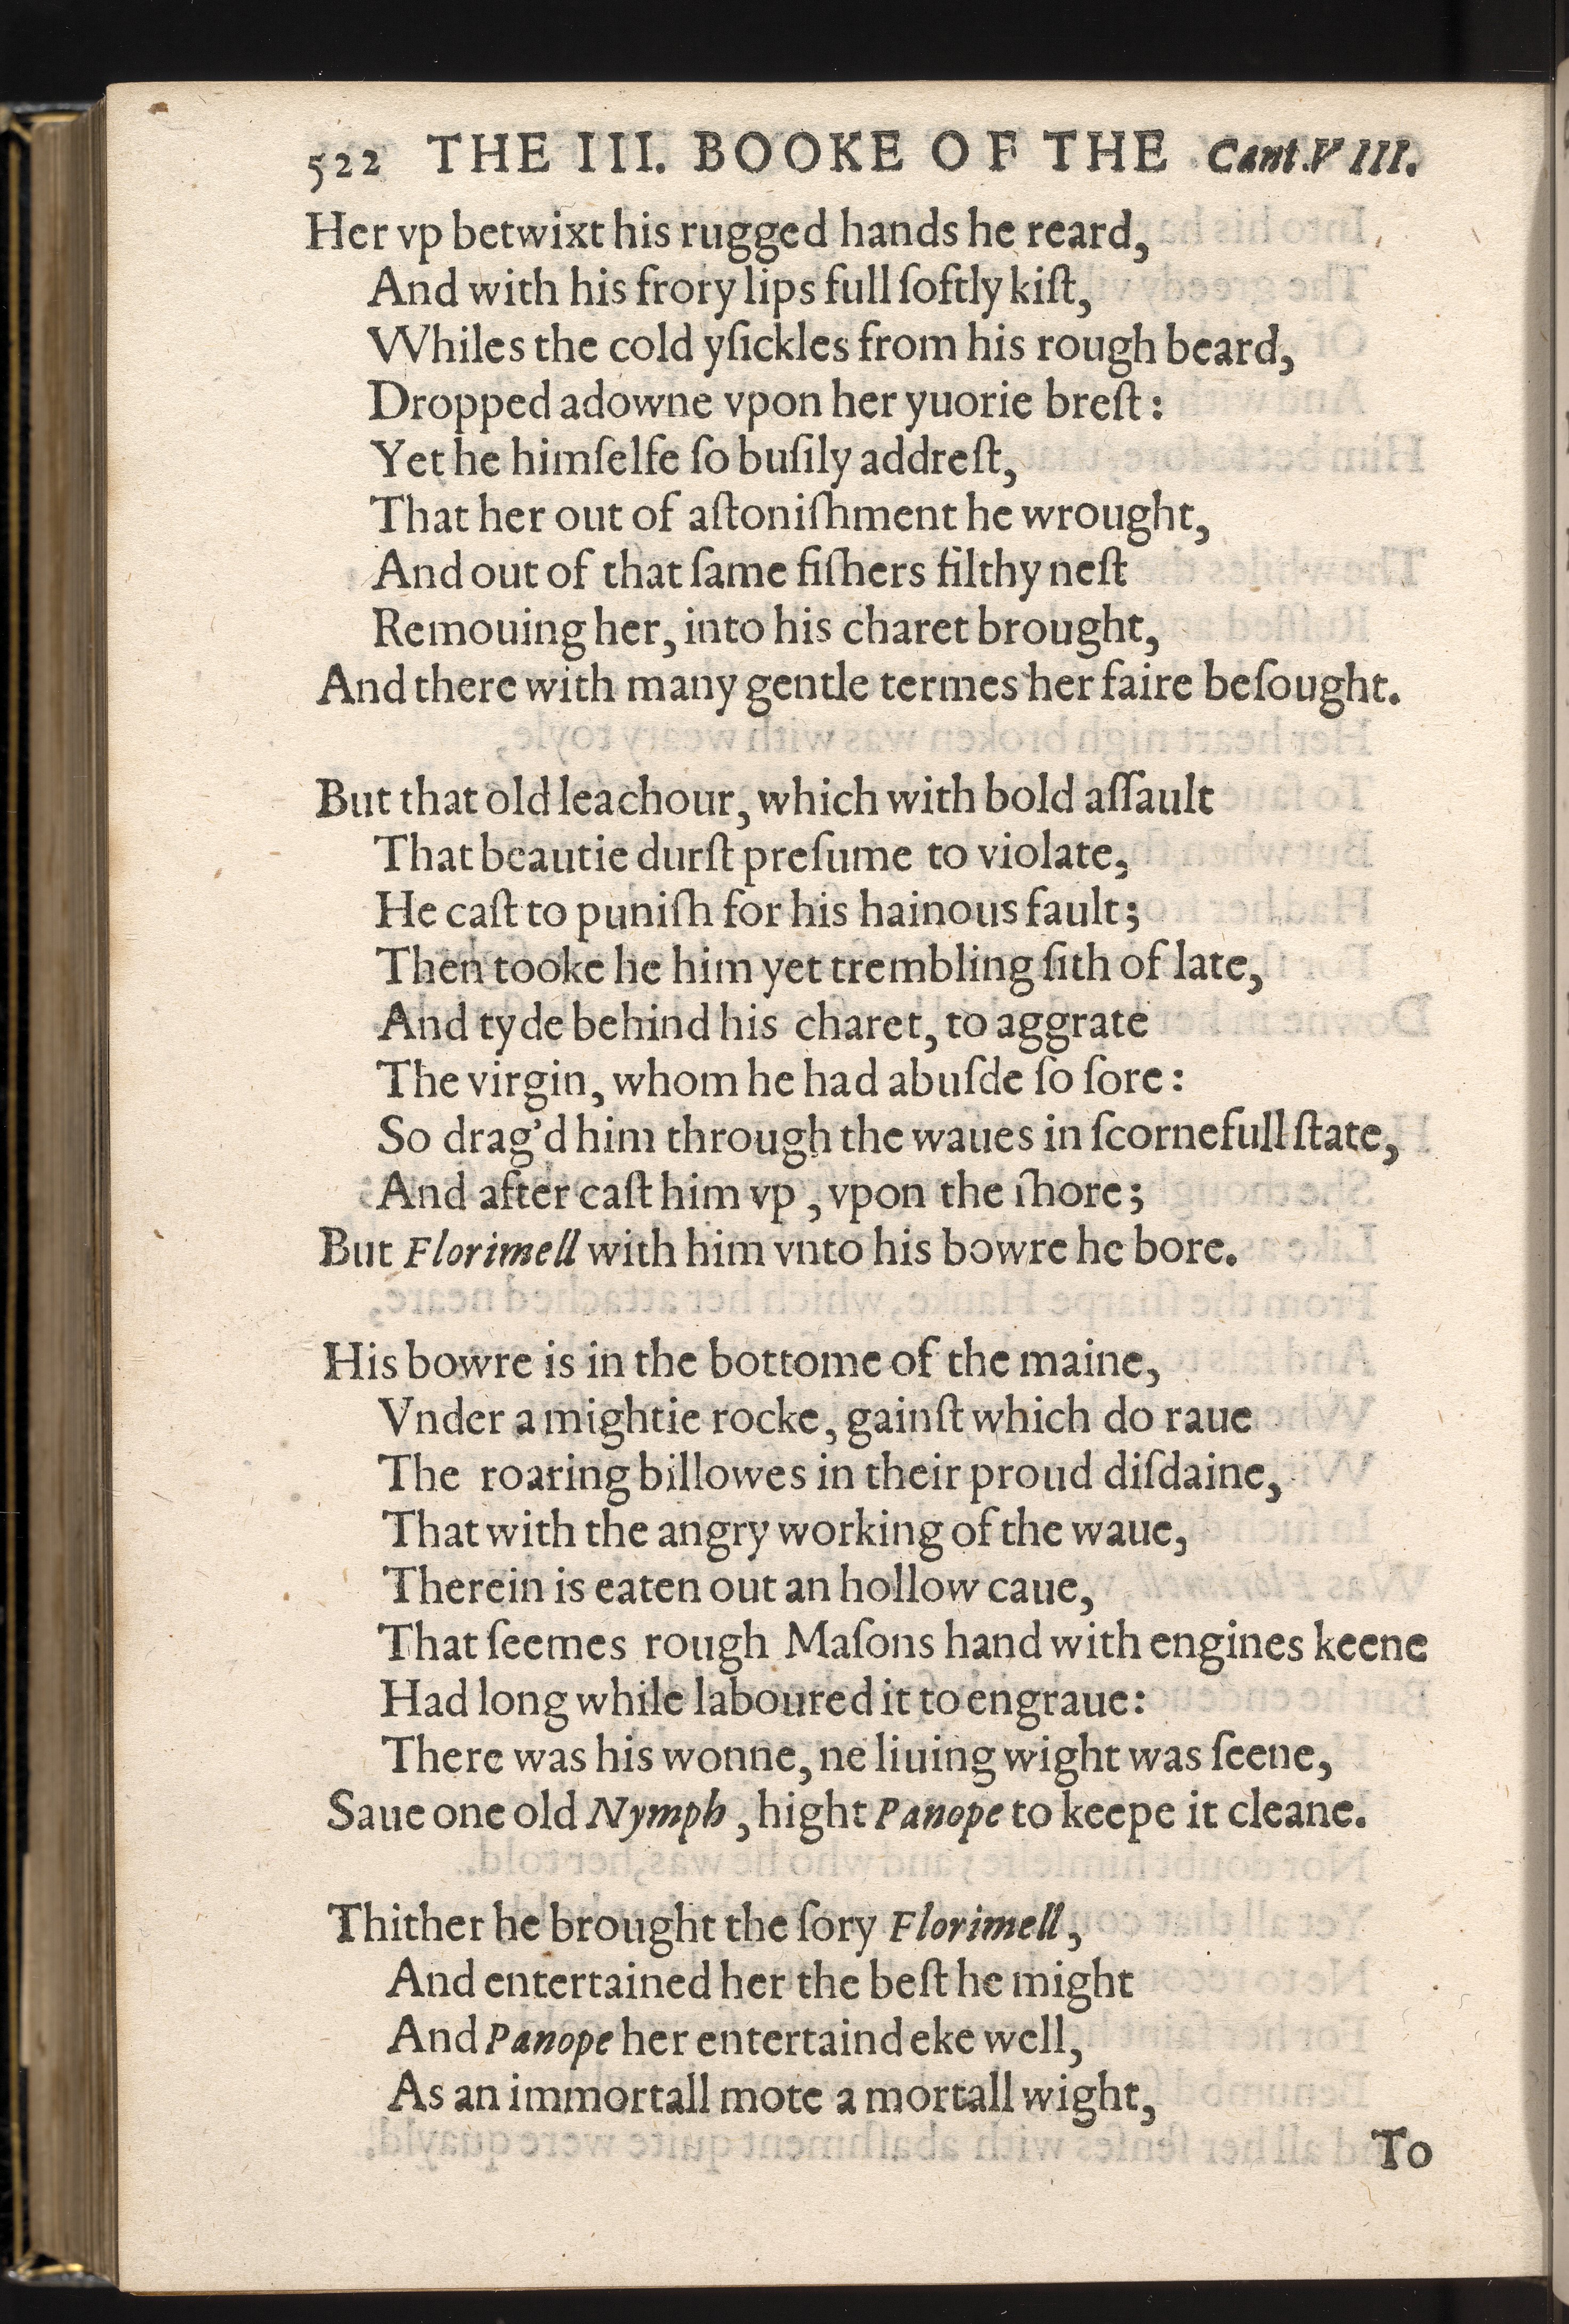 522 THE III. BOOKE OF THE Cant.VIII.
Her vp betwixt his rugged hands he reard,
And with his frory lips full ſoftly kiſt,
Whiles the cold yſickles from his rough beard,
Dropped adowne vpon her yuorie breſt:
Yet he himſelfe ſo buſily addreſt,
That her out of aſtoniſhment he wrought,
And out of that ſame fiſhers filthy neſt
Remouing her, into his charet brought,
And there with many gentle termes her faire beſought.
But that old leachour, which with bold aſſault
That beautie durſt preſume to violate,
He caſt to puniſh for his hainous fault;
Then tooke he him yet trembling ſith of late,
And tyde behind his charet, to aggrate
The virgin, whom he had abuſde ſo ſore:
So drag'd him through the waues in ſcornefull ſtate,
And after caſt him vp, vpon the ſhore;
But Florimell with him vnto his bowre he bore.
His bowre is in the bottome of the maine,
Vnder a mightie rocke, gainſt which do raue
The roaring billowes in their proud diſdaine,
That with the angry working of the waue,
Therein is eaten out an hollow caue,
That ſeemes rough Maſons hand with engines keene
Had long while laboured it to engraue:
There was his wonne, ne liuing wight was ſeene,
Saue one old Nymph, hight Panope to keepe it cleane.
Thither he brought the ſory Florimell,
And entertained her the beſt he might
And Panope her entertaind eke well,
As an immortall mote a mortall wight,
To